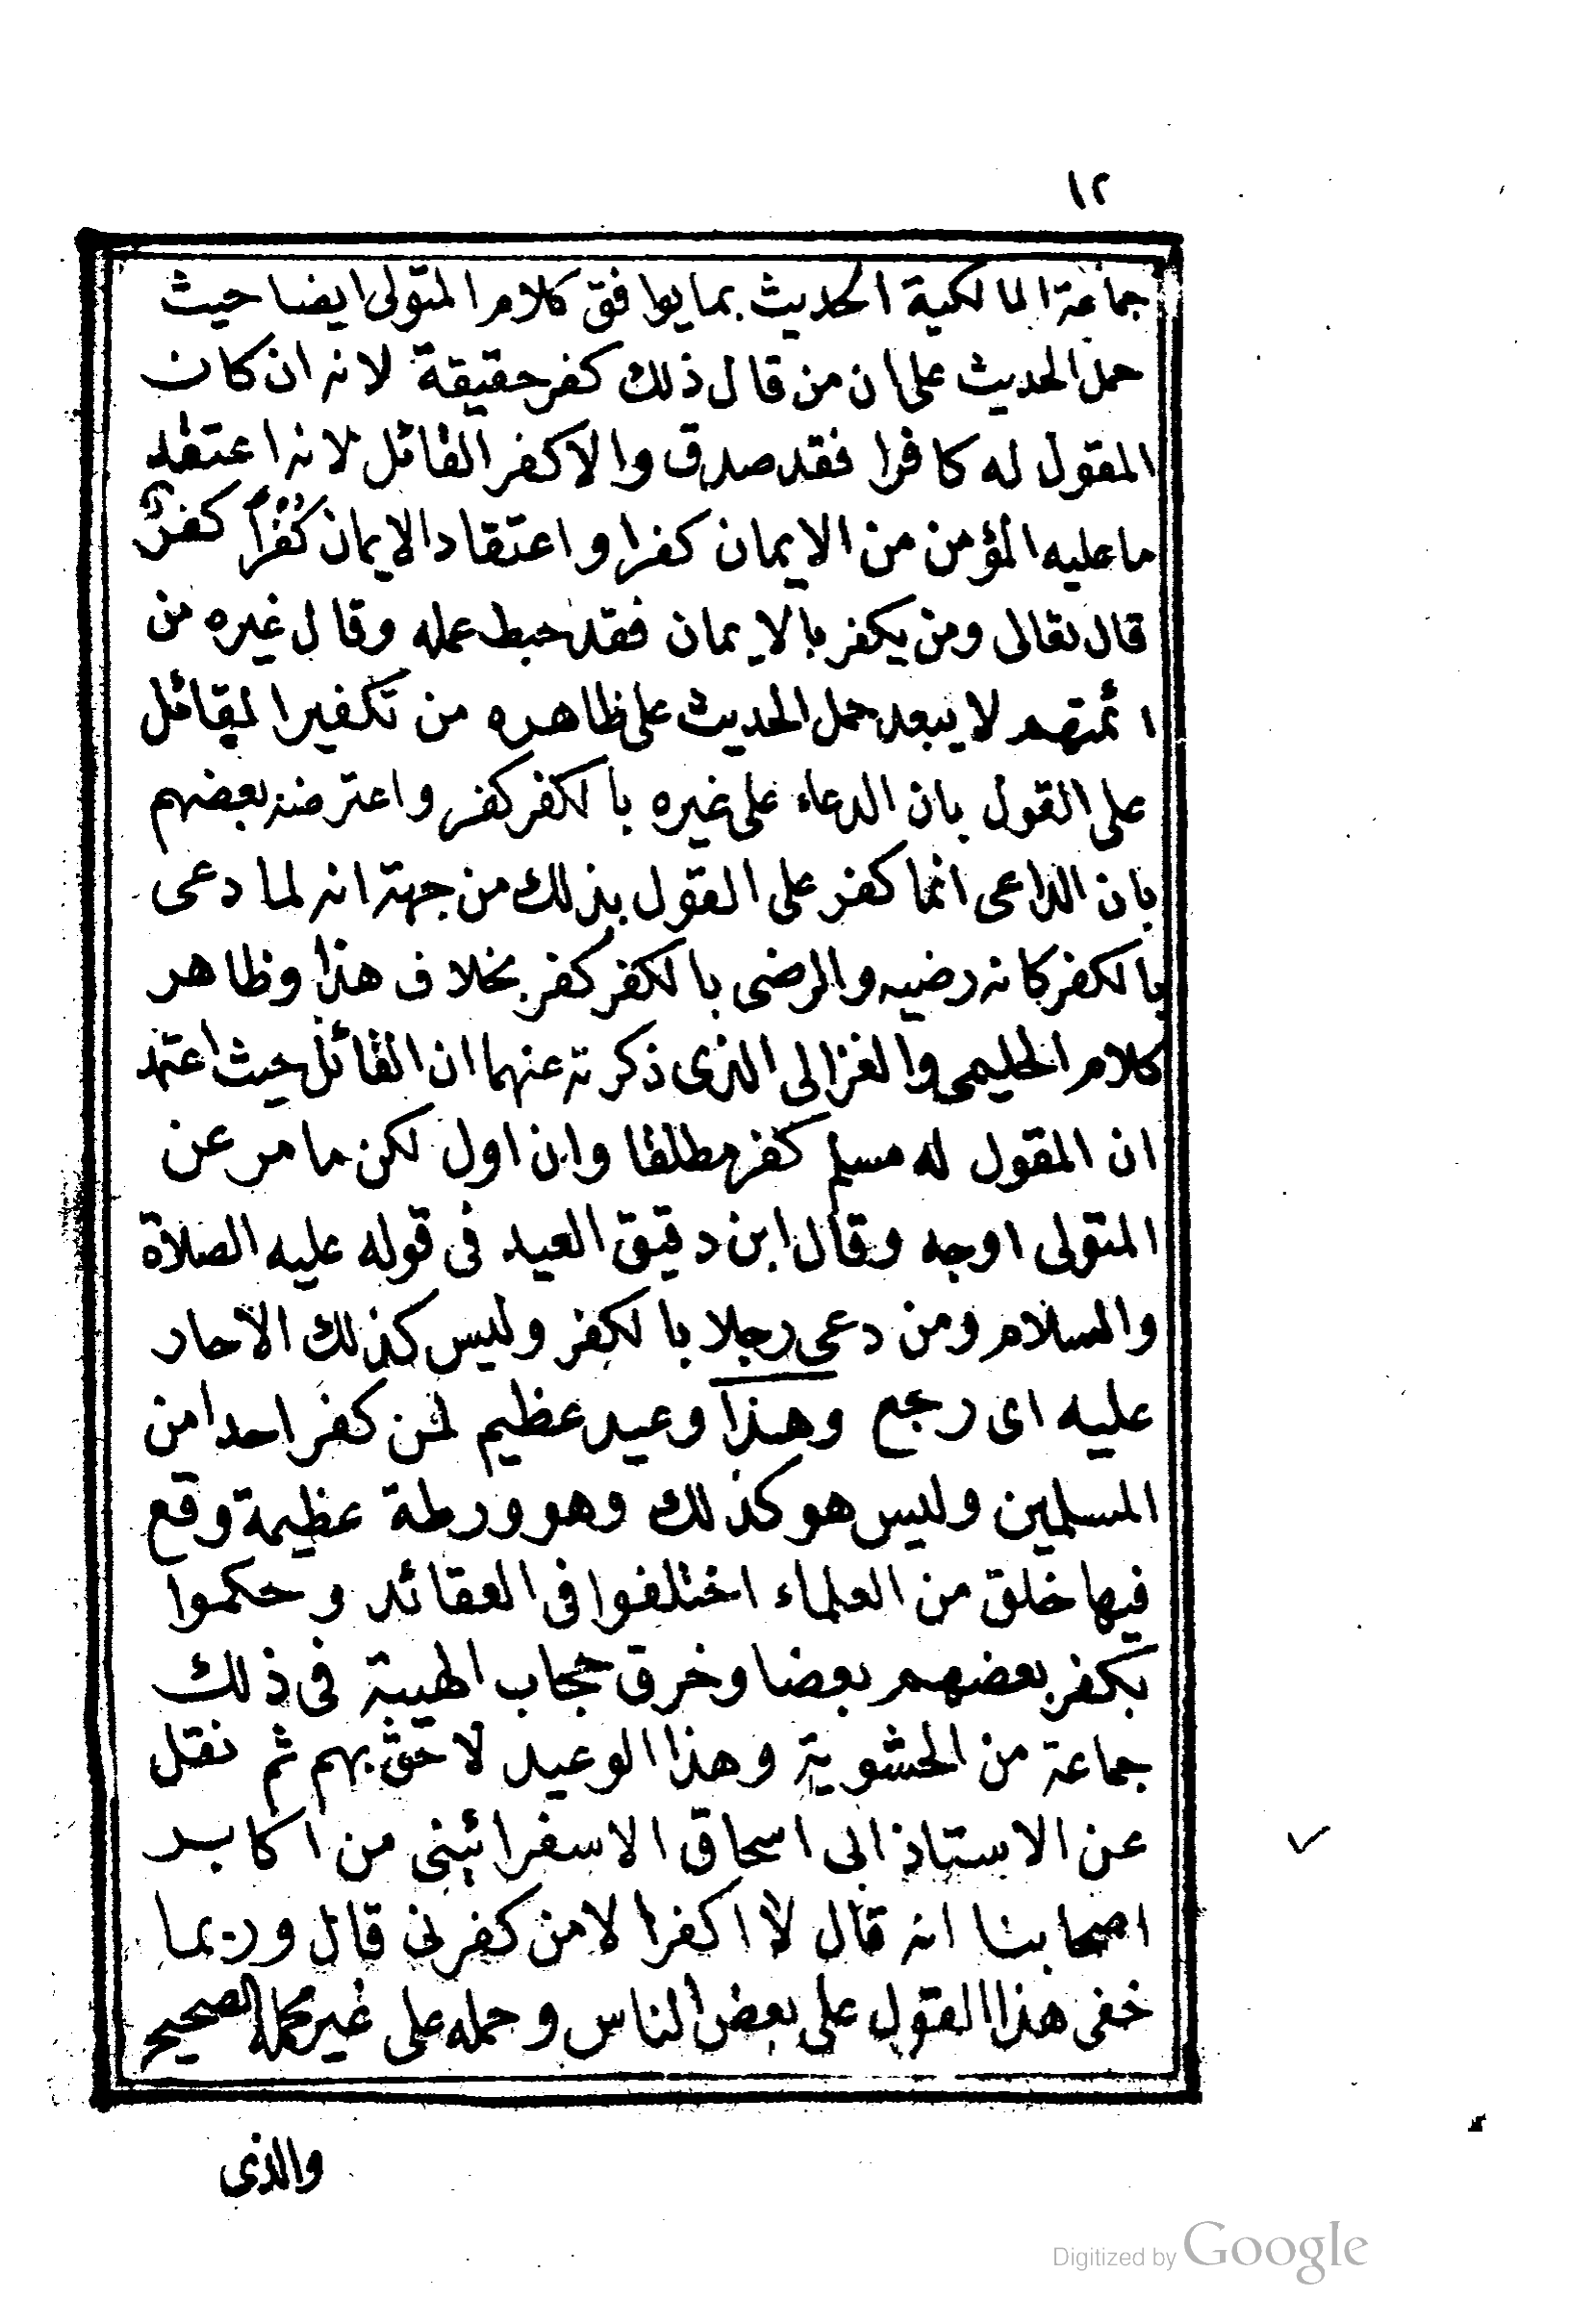 ١٢
جماعة المالكية الحديث بما يوافق كلام المتولى ايضا حيث
حمل الحديث على ان من قال ذلك كفر حقيقة لانه ان كان
المقول له كافرا فقد صدق والا كفر القائل لانه اعتقد
ما عليه المؤمن من الايمان كفرا واعتقاد الايمان كُفْراً كفر
قال تعالى ومن يكفر بالايمان فقد حبط عمله وقال غيره من
ائمتهم لا يبعد حمل الحديث على ظاهره من تكفير القائل
على القول بان الدعاء على غيره بالكفر كفر واعترضه بعضهم
بان الداعى انما كفر على القول بذلك من جهة انه لما دعى
بالكفر كانه رضيه والرضى بالكفر كفر بخلاف هذا وظاهر
كلام الحليمى والغزالى الذى ذكرته عنهما ان القائل حيث اعتقد
ان المقول له مسلم كفر مطلقا وان اول لكن ما مر عن
المتولى اوجه وقال ابن دقيق العيد فى قوله عليه الصلاة
والسلام ومن دعى رجلا بالكفر وليس كذلك الا حار
عليه اى رجع وهذا وعيد عظيم لمن كفر احدا من
المسلمين وليس هو كذلك وهو ورطة عظيمة وقع
فيها خلق من العلماء اختلفوا فى العقائد وحكموا
بكفر بعضهم بعضا وخرق حجاب الهيبة فى ذلك
جماعة من الحشوية وهذا الوعيد لاحق بهم ثم نقل
عن الاستاذ ابى اسحاق الاسفرائينى من اكابر
اصحابنا انه قال لا اكفر الا من كفرنى قال وربما
خفى هذا القول على بعض الناس وحمله على غير محمله الصحيح
والذى
Digitized by Google